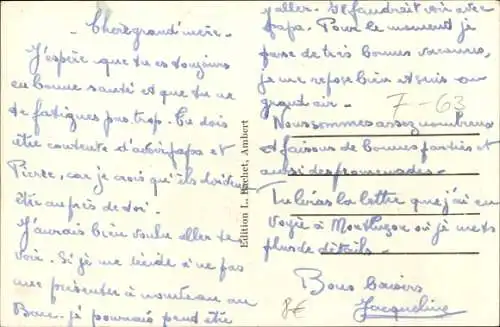 Chère grand'mère.
J'espère que tu es toujours
en bonne santé et que tu ne
te fatigues pas trop. Tu dois
être contente d'avoir papa et
Pierre, car je crois qu'ils doivent
être auprès de toi.
J'aurais bien voulu aller te
voir. Si je me décide à ne pas
me présenter à nouveau au
Bac. je pourrais peut être
y aller. Il faudrait voir avec
papa. Pour le moment je
passe de très bonnes vacances,
je me repose bien et suis au
grand air.
Nous sommes assez nombreux
et faisons de bonnes parties et
aussi des promenades.
Tu liras la lettre que j'ai en
voyée à Montluçon où je mets
plus de détails.
Bons baisers
Jacqueline
7-63
8€
Edition L. Bachet, Ambert